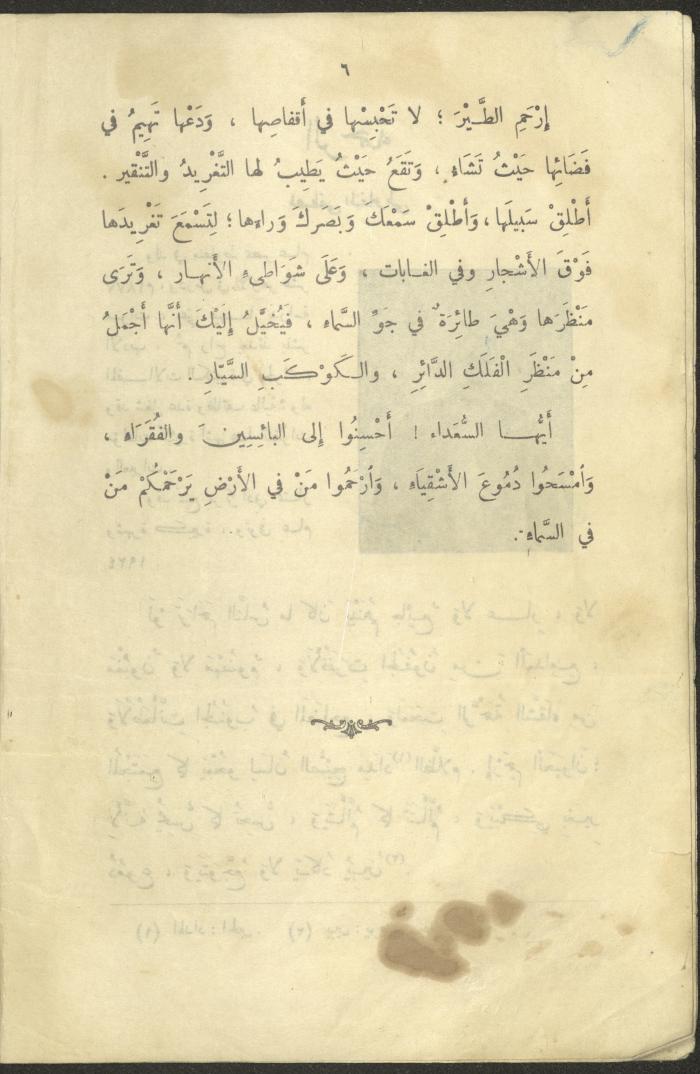 ٦
إِرْحَمِ الطَّيْرَ ؛ لا تَحْبِسْها في أَقفاصِها ، وَدَعْها تَهِيمُ في
فَضَائِها حَيْثُ تَشَاءُ ، وَتَقَعُ حَيْثُ يَطِيبُ لها التَّغْرِيدُ والتَّنْقير .
أَطْلِقْ سَبِيلَها ، وَأَطْلِقْ سَمْعَك وَبَصَرَكَ وَراءها ؛ لِتَسْمَعَ تَغْرِيدَها
فَوْقَ الأَشْجارِ وفي الغابات ، وَعَلَى شَوَاطىءِ الأَنهار ، وَتَرَى
مَنْظَرَها وَهْيَ طائِرَةٌ في جَوِّ السَّماءِ ، فَيُخَيَّلُ إِلَيْكَ أَنَّها أَجْمَلُ
مِنْ مَنْظَرِ الْفَلَكِ الدَّائِرِ ، والكَوْكَبِ السَّيّارِ .
أَيُّها السُّعَداء ! أَحْسِنُوا إِلى البائِسِينَ والفُقَرَاءِ ،
وَامْسَحُوا دُمُوعَ الأَشْقِيَاءِ ، وَارْحَمُوا مَنْ في الأَرْضِ يَرْحَمْكُمْ مَنْ
في السَّماءِ .